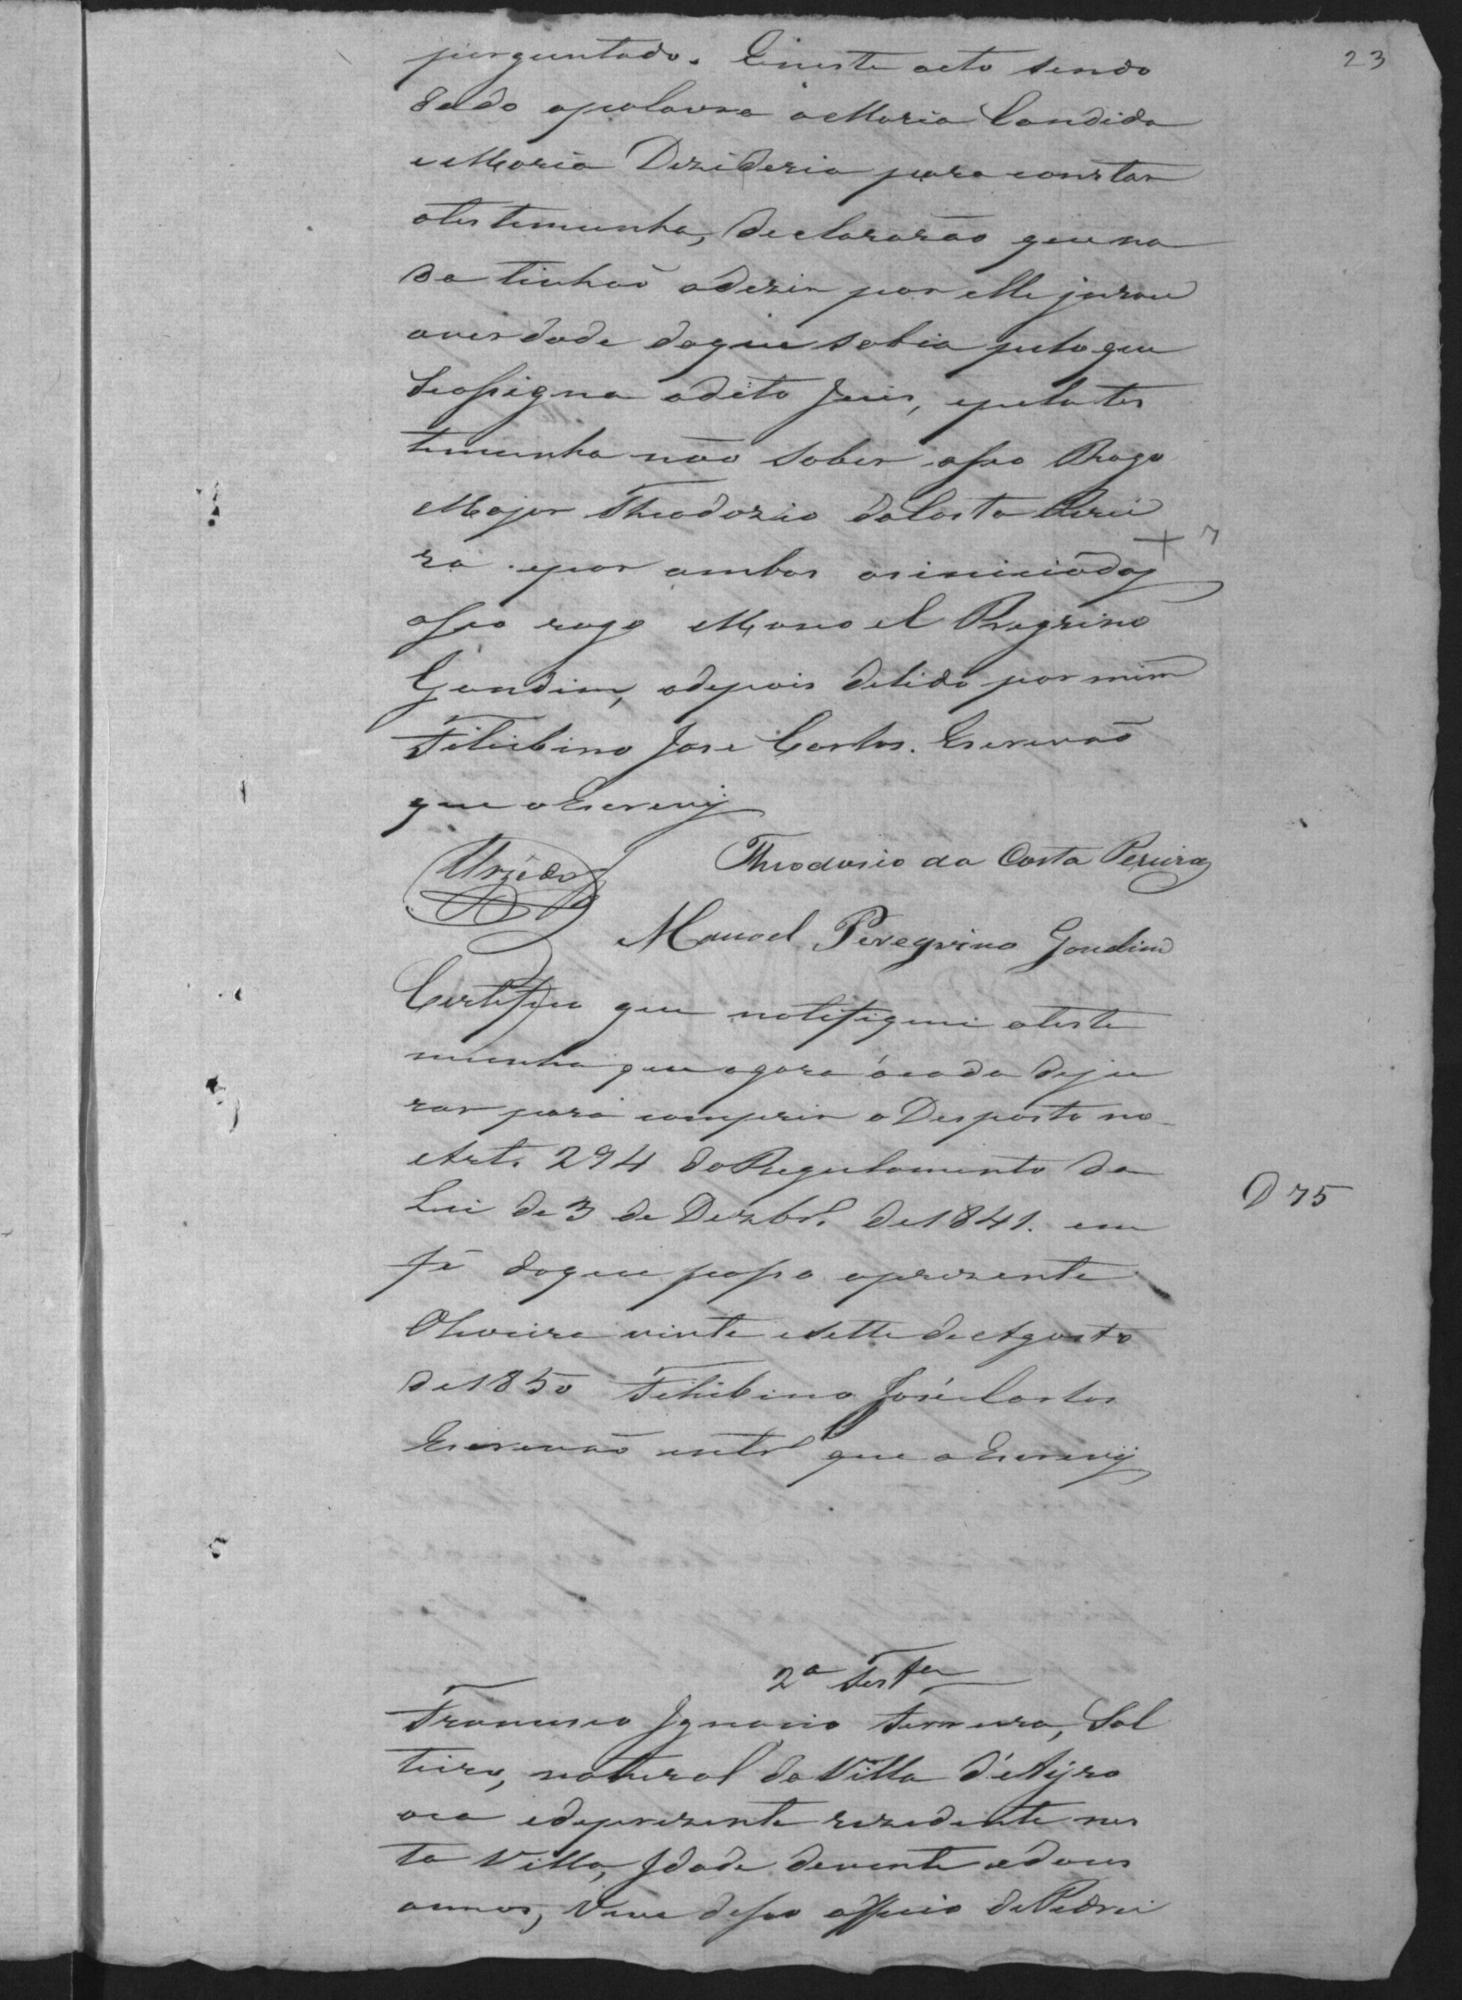 23
perguntado. Eneste acto sendo
dado apalavra aMaria Candida
eMaria Dezideria para constar
atestemunha, declararão quena
da tinhaõ adezer por elle jurou
averdade doque sabia peloque
seassigna odito Juis, epelates
temunha não saber aseo Rogo
Major Theodozio daCosta Perei
ra epor ambos osiniciados
aseo rogo Manoel Peregrino
Gondim, edepois delido por mim
Felisbino Jose Carlos. Escrivaõ
que oEscrevy
Theodosio da Costa Pereira
Manoel Peregrino Gondim
Certifico que notifiquei ateste
munha que agora ácada deju
rar para comprir o Desposto no
Art. 294 doRegulamento da
Lei de 3 de Dezbrº de 1841. em
fé doque passo aprezente
D 75
Oliveira vinte esette deAgosto
de 1850 Felisbino José Carlos
Escrivaõ que oEscrevy
2ª Testª
Francisco Ignacio Ferreira, Sol
teiro, natural da Villa d'Aijro
oca edeprezente rezedente nes
ta Villa, Idade devente edous
annos, Vive deseo officio de Pedrei